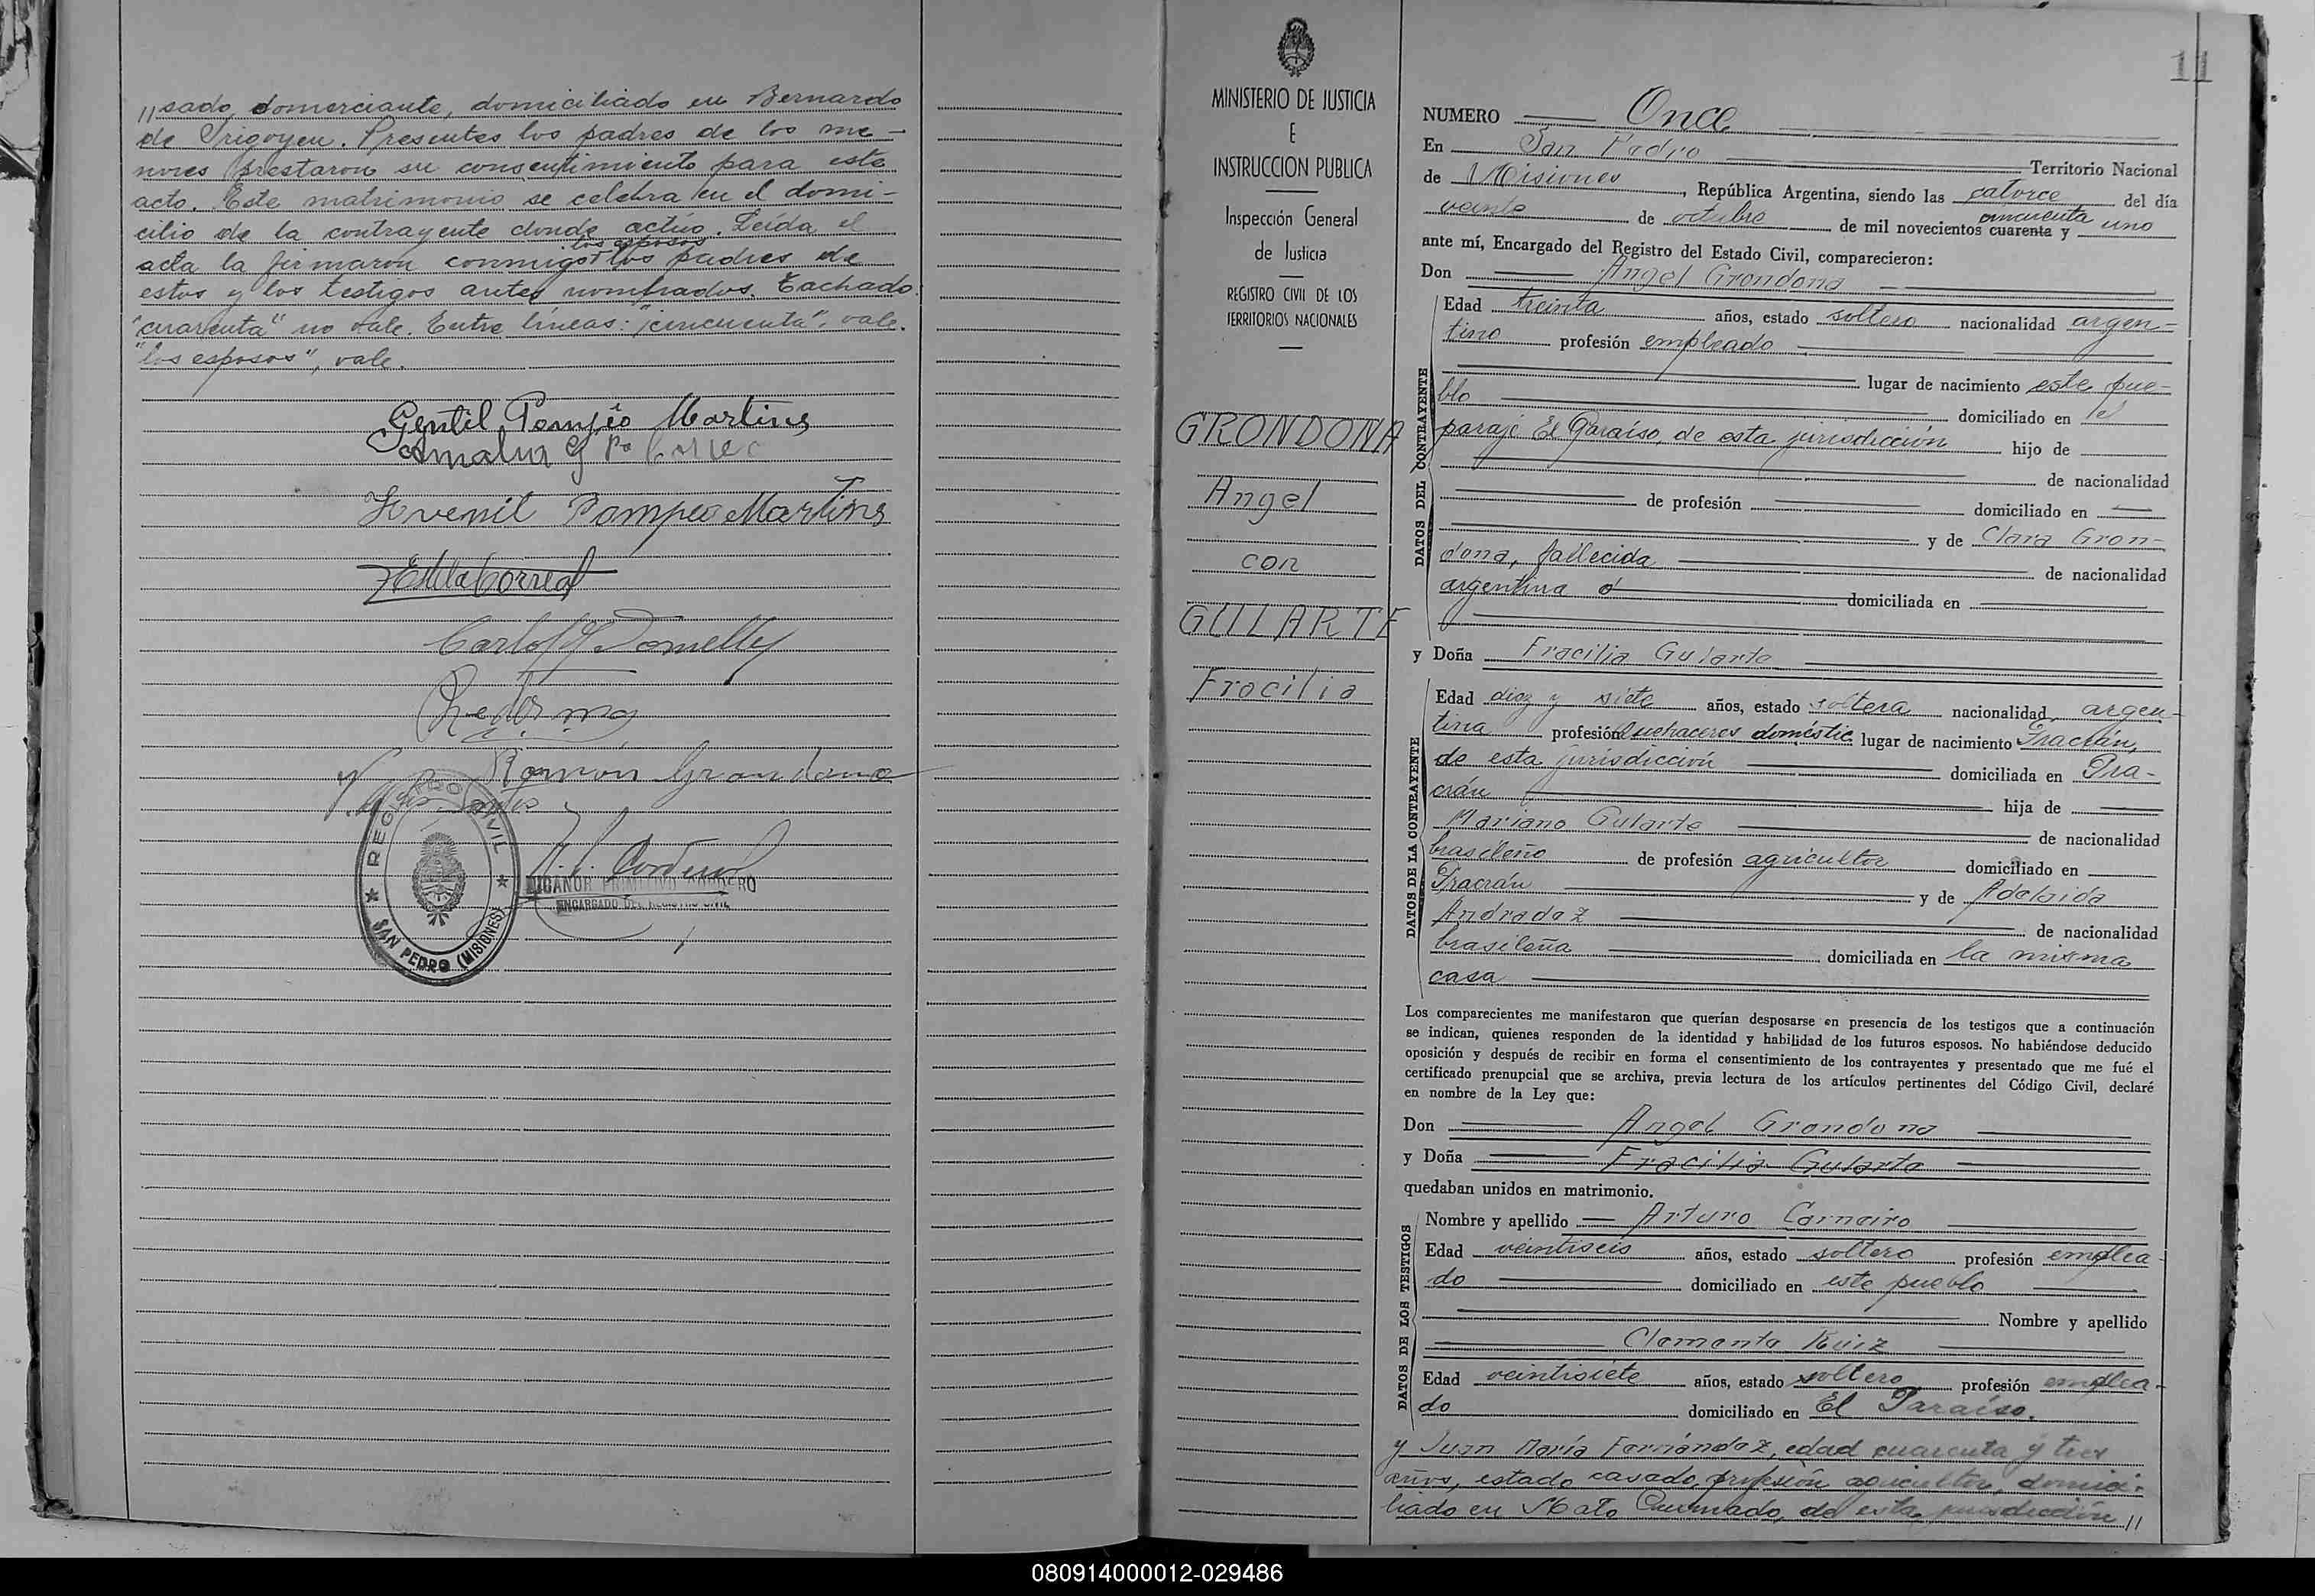 //sado, comerciante, domiciliado en Bernardo
de Irigoyen. Presentes los padres de los me-
nores prestaron su consentimiento para este
acto. Este matrimonio se celebra en el domi-
cilio de la contrayente donde actúo. Leída el
los esposos
acta la firmaron conmigo los padres de
estos y los testigos antes nombrados. Tachado
"cuarenta" no vale. Entre líneas: "cincuenta", vale.
"los esposos", vale.
Gentil Pompêo Martins
Juvenil Pompeo Martins
Estela Correa
Ramón Grondona
REGISTRO CIVIL
SAN PEDRO (MISIONES)
NICANOR PRIMITIVO CORDERO
ENCARGADO DEL REGISTRO CIVIL
MINISTERIO DE JUSTICIA
E
INSTRUCCION PUBLICA
Inspección General
de Justicia
REGISTRO CIVIL DE LOS
TERRITORIOS NACIONALES
GRONDONA
Angel
con
GULARTE
Fracilia
11
NUMERO Once
En San Pedro Territorio Nacional
de Misiones, República Argentina, siendo las catorce del día
cincuenta
veinte de octubre de mil novecientos cuarenta y uno
ante mí, Encargado del Registro del Estado Civil, comparecieron:
Don Angel Grondona
DATOS DEL CONTRAYENTE
Edad treinta años, estado soltero nacionalidad argen-
tino profesión empleado
lugar de nacimiento este pue-
blo domiciliado en el
paraje El Paraíso, de esta jurisdicción hijo de
de nacionalidad
de profesión domiciliado en
y de Clara Gron-
dona, fallecida de nacionalidad
argentina domiciliada en
y Doña Fracilia Gularte
DATOS DE LA CONTRAYENTE
Edad diez y siete años, estado soltera nacionalidad argen-
tina profesión quehaceres doméstic. lugar de nacimiento Pracrán,
de esta jurisdicción domiciliada en Pra-
crán hija de
Mariano Gularte de nacionalidad
brasileño de profesión agricultor domiciliado en
Pracrán y de Adelaida
Andradaz de nacionalidad
brasileña domiciliada en la misma
casa
Los comparecientes me manifestaron que querían desposarse en presencia de los testigos que a continuación
se indican, quienes responden de la identidad y habilidad de los futuros esposos. No habiéndose deducido
oposición y después de recibir en forma el consentimiento de los contrayentes y presentado que me fué el
certificado prenupcial que se archiva, previa lectura de los artículos pertinentes del Código Civil, declaré
en nombre de la Ley que:
Don Angel Grondona
y Doña Fracilia Gularte
quedaban unidos en matrimonio.
DATOS DE LOS TESTIGOS
Nombre y apellido Arturo Carneiro
Edad veintiseis años, estado soltero profesión emplea-
do domiciliado en este pueblo
Nombre y apellido
Clemente Ruiz
Edad veintisiete años, estado soltero profesión emplea-
do domiciliado en El Paraíso.
y Juan María Fernández, edad cuarenta y tres
años, estado casado, profesión agricultor, domici-
liado en Mato Queimado, de esta jurisdicción //
080914000012-029486